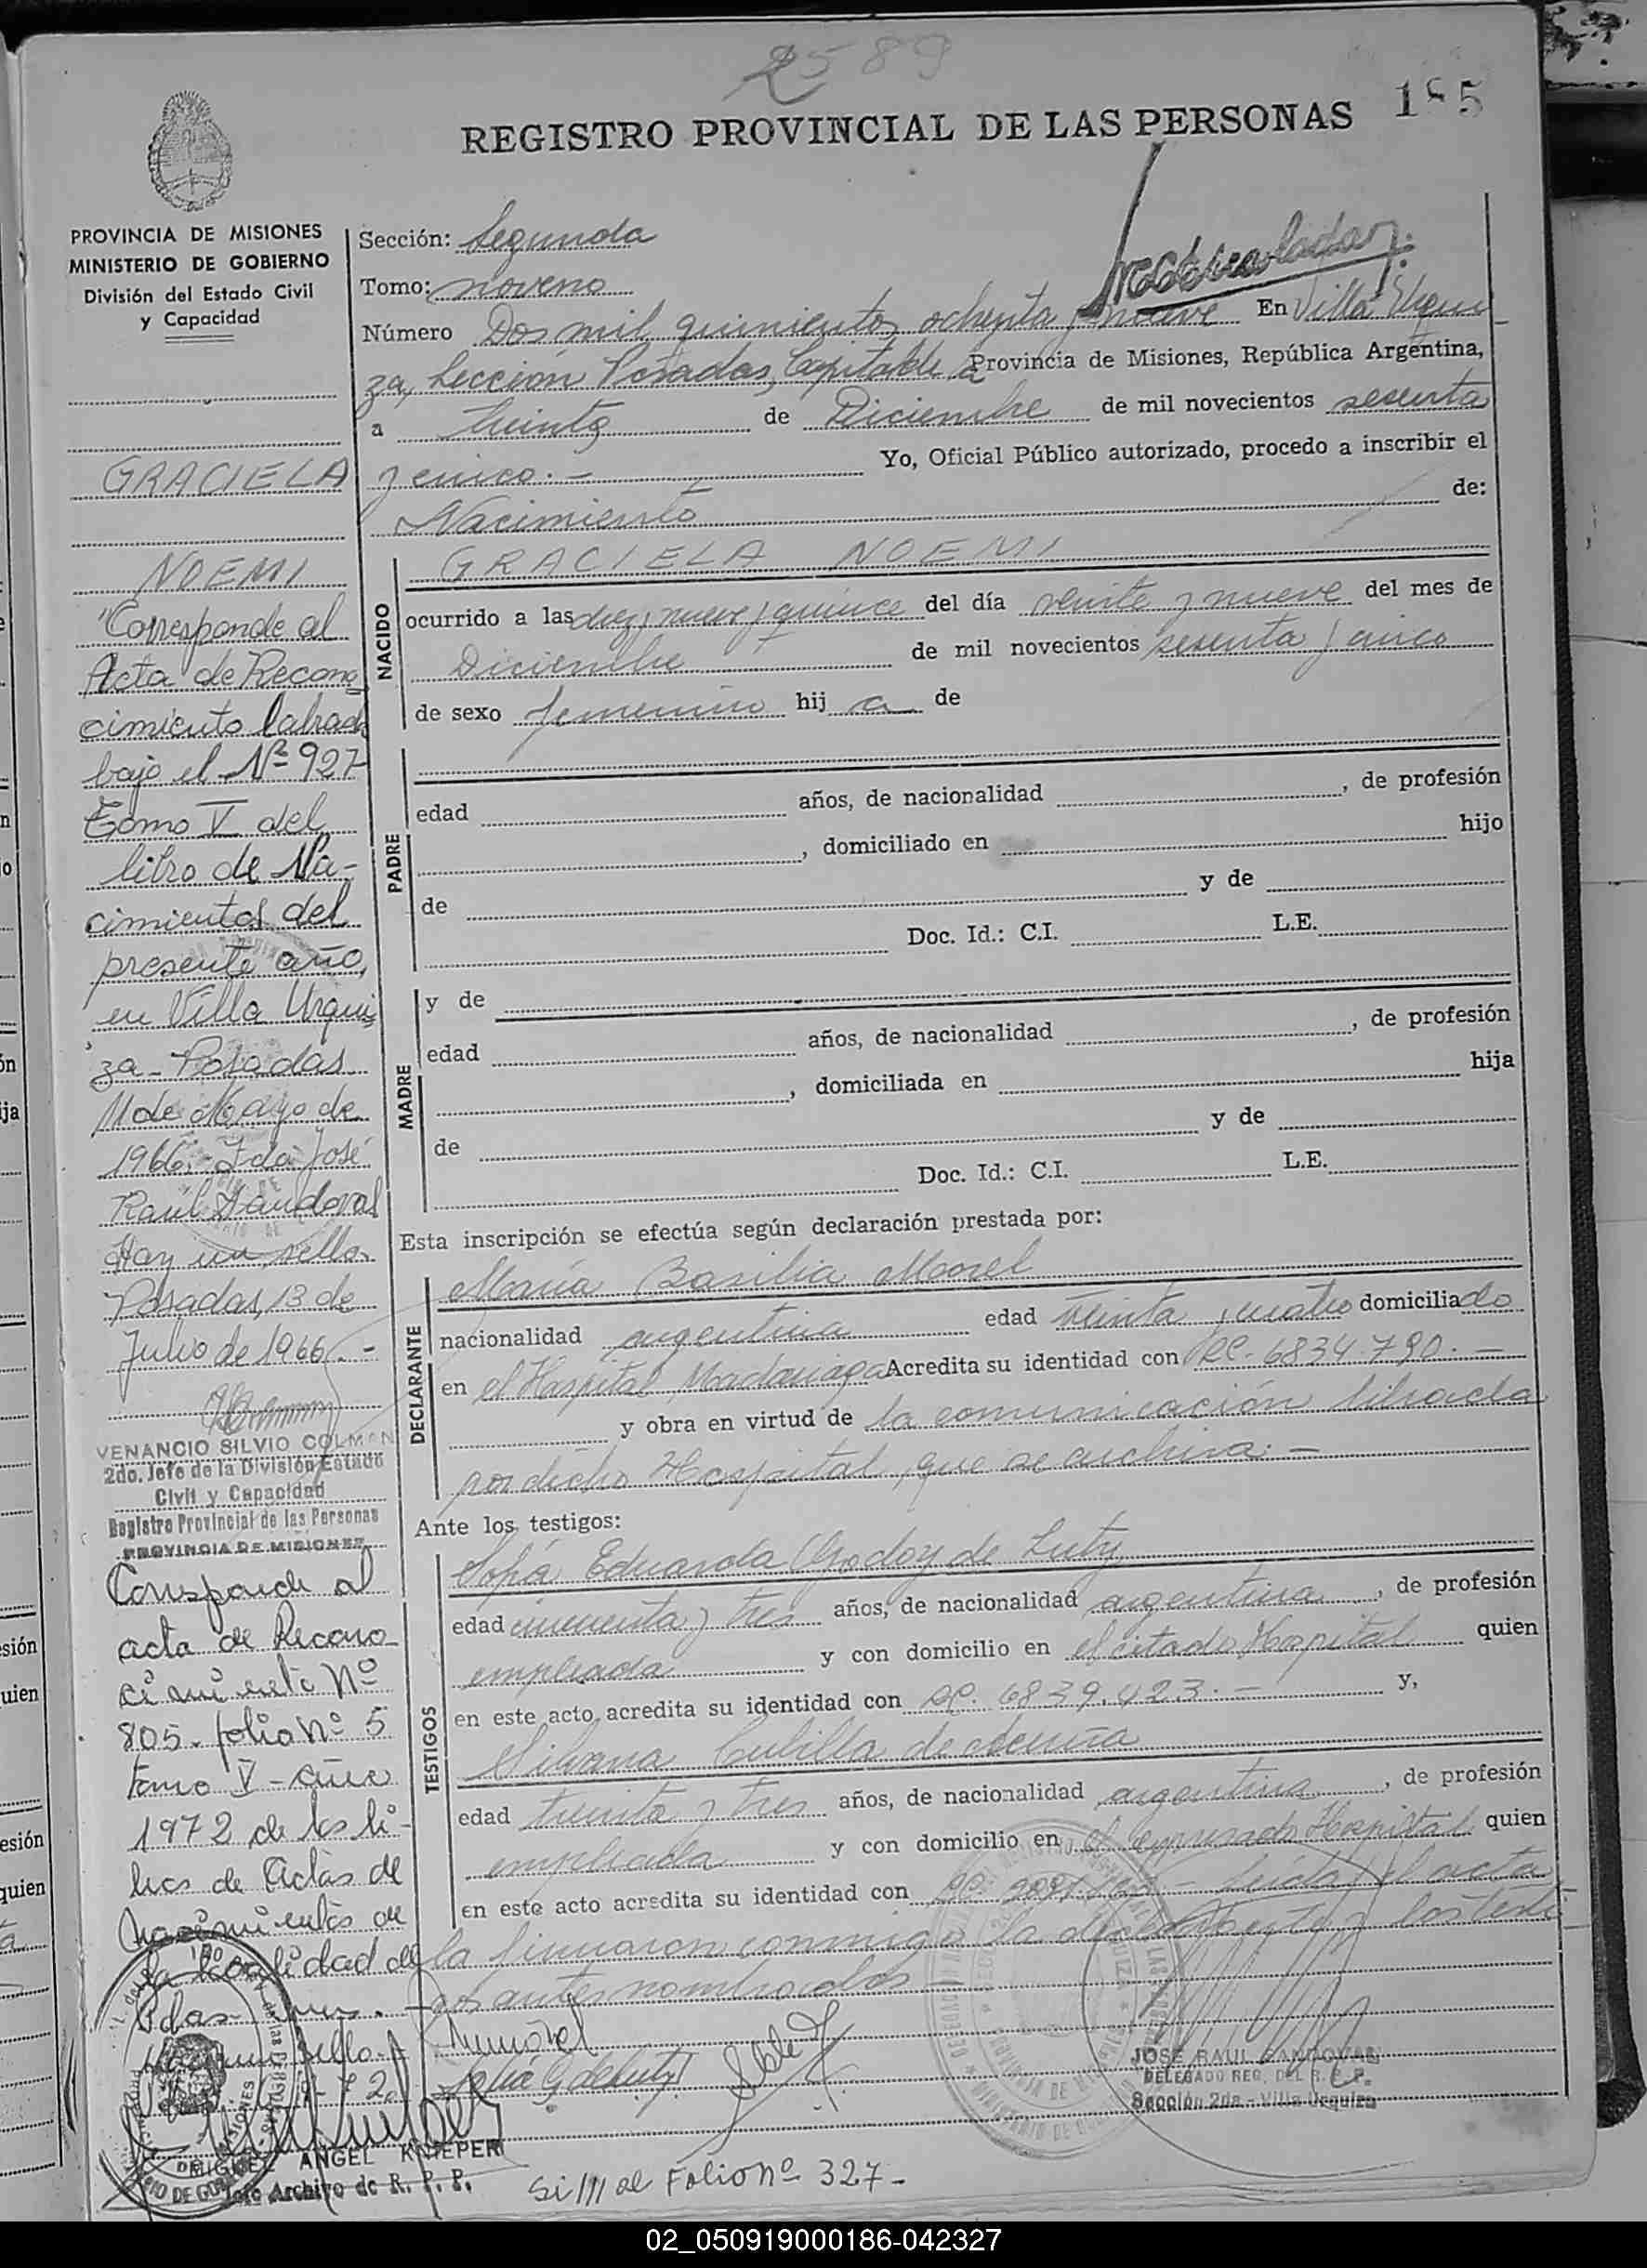 2589
REGISTRO PROVINCIAL DE LAS PERSONAS
PROVINCIA DE MISIONES
MINISTERIO DE GOBIERNO
División del Estado Civil
y Capacidad
GRACIELA
NOEMI
"Corresponde al
Acta de Recono
cimiento labrada
bajo el Nº 927
Tomo V del
libro de Na-
cimientos del
presente año,
en Villa Urqui
za - Posadas
11 de Mayo de
1966.- Fdo José
Raúl Sandoval
Hay un sello
Posadas, 13 de
Julio de 1966.-
VENANCIO SILVIO COLMAN
2do. Jefe de la División Estado
Civil y Capacidad
Registro Provincial de las Personas
PROVINCIA DE MISIONES
Corresponde al
acta de Recono
cimiento Nº
805. folio Nº 5
tomo V - año
1972 de los li-
bros de Actas de
Nacimientos de
la localidad de
Pdas
MIGUEL ANGEL KNIEPER
Jefe Archivo de R. P. P.
Sección: Segunda
Tomo: noveno
Número Dos mil quinientos ochenta y nueve En Villa Urqui
za, Sección Posadas, Capital de la Provincia de Misiones, República Argentina,
a treinta de Diciembre de mil novecientos sesenta
y cinco.- Yo, Oficial Público autorizado, procedo a inscribir el
Nacimiento de:
NACIDO
GRACIELA NOEMI
ocurrido a las diez y nueve y quince del día veinte y nueve del mes de
Diciembre de mil novecientos sesenta y cinco
de sexo femenino hij a de
PADRE
edad años, de nacionalidad , de profesión
, domiciliado en hijo
de y de
Doc. Id.: C.I. L.E.
MADRE
y de
edad años, de nacionalidad , de profesión
, domiciliada en hija
de y de
Doc. Id.: C.I. L.E.
Esta inscripción se efectúa según declaración prestada por:
DECLARANTE
María Basilia Morel
nacionalidad argentina edad treinta y cuatro domiciliado
en el Hospital Madariaga Acredita su identidad con 6834.790.-
y obra en virtud de la comunicación librada
por dicho Hospital, que se archiva.-
Ante los testigos:
TESTIGOS
Sofía Eduarda Godoy de Luty
edad cincuenta y tres años, de nacionalidad argentina, de profesión
empleada y con domicilio en el citado Hospital quien
en este acto acredita su identidad con 6839.423.- y,
Silvana Cubilla de Acuña
edad treinta y tres años, de nacionalidad argentina, de profesión
empleada y con domicilio en el expresado Hospital quien
en este acto acredita su identidad con - Leída el acta
la firmaron conmigo la declarante y los testi
gos antes nombrados
Sofía G de Luty
JOSE RAUL SANDOVAL
DELEGADO REG. DEL R. P. P.
Sección 2da - Villa Urquiza
al Folio nº 327-
02_050919000186-042327